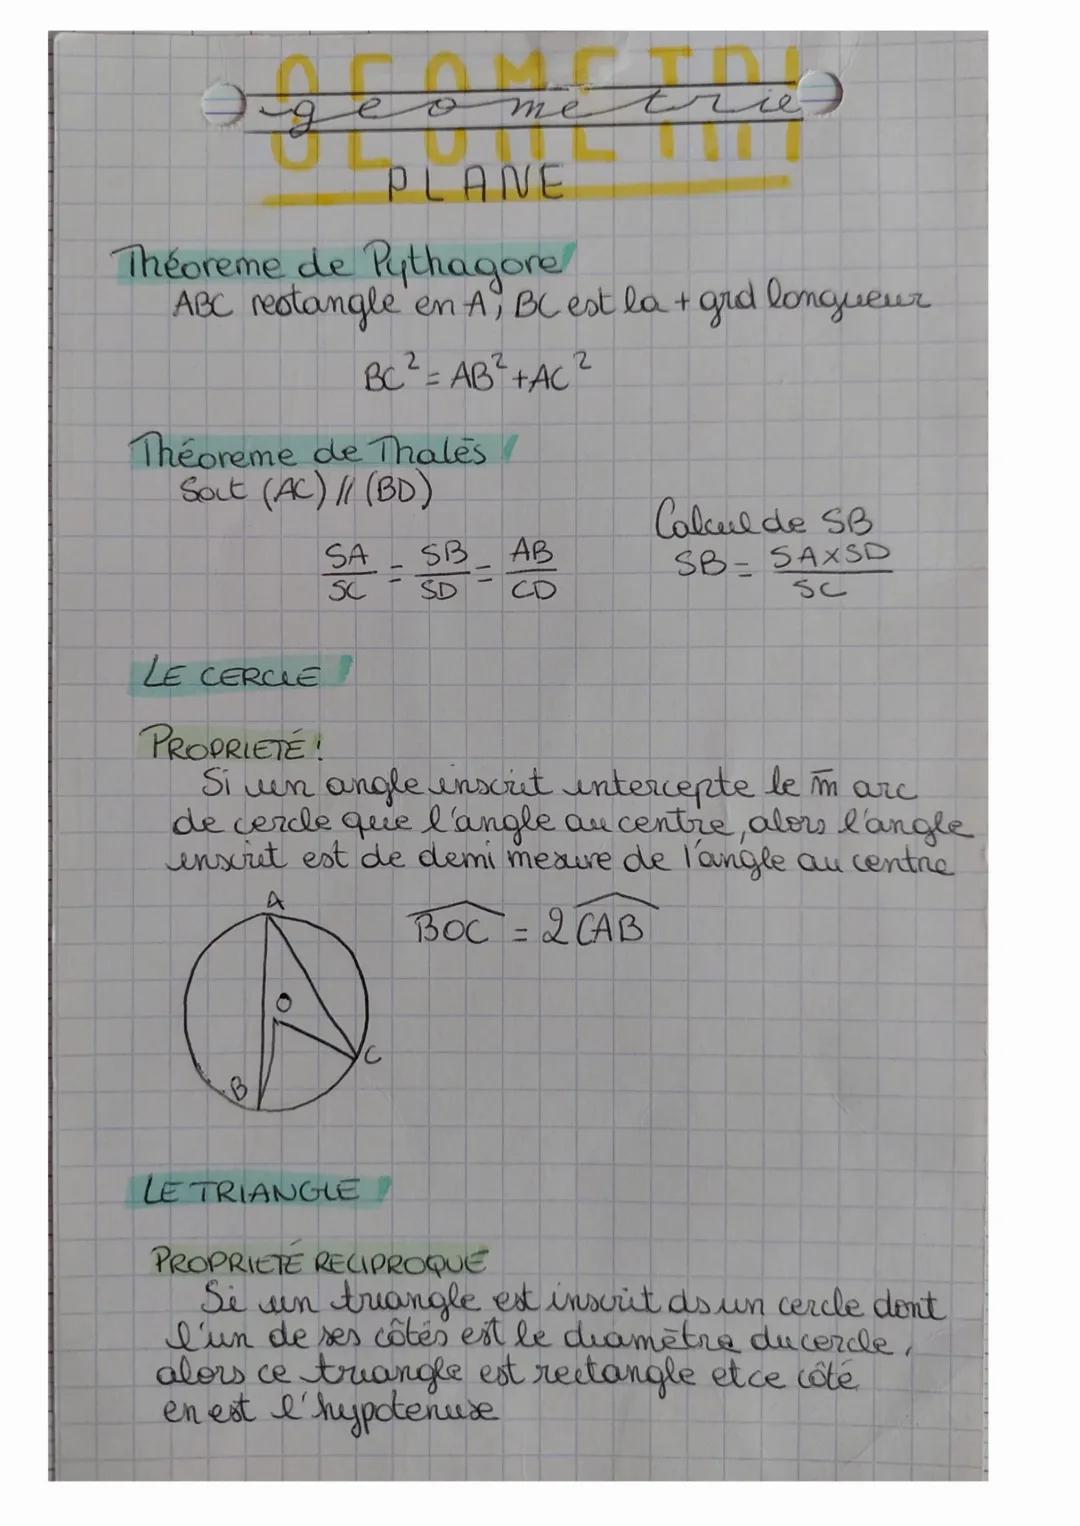 GEOMETRI
géométrie
PLANE
Théoreme de Pythagore
ABC rectangle en A, BC est la + grd longueur
BC² = AB² + AC²
Théoreme de Thalès
Soit (AC) // (BD)
SA/SC = SB/SD = AB/CD
Calcul de SB
SB = SA×SD/SC
LE CERCLE
PROPRIETÉ !
Si un angle inscrit intercepte le m̄ arc
de cercle que l'angle au centre, alors l'angle
inscrit est de demi mesure de l'angle au centre
A
BOC = 2 CAB
O
C
B
LE TRIANGLE
PROPRIETÉ RECIPROQUE
Si un triangle est inscrit ds un cercle dont
l'un de ses côtés est le diamètre du cercle,
alors ce triangle est rectangle et ce côté
en est l'hypotenuse